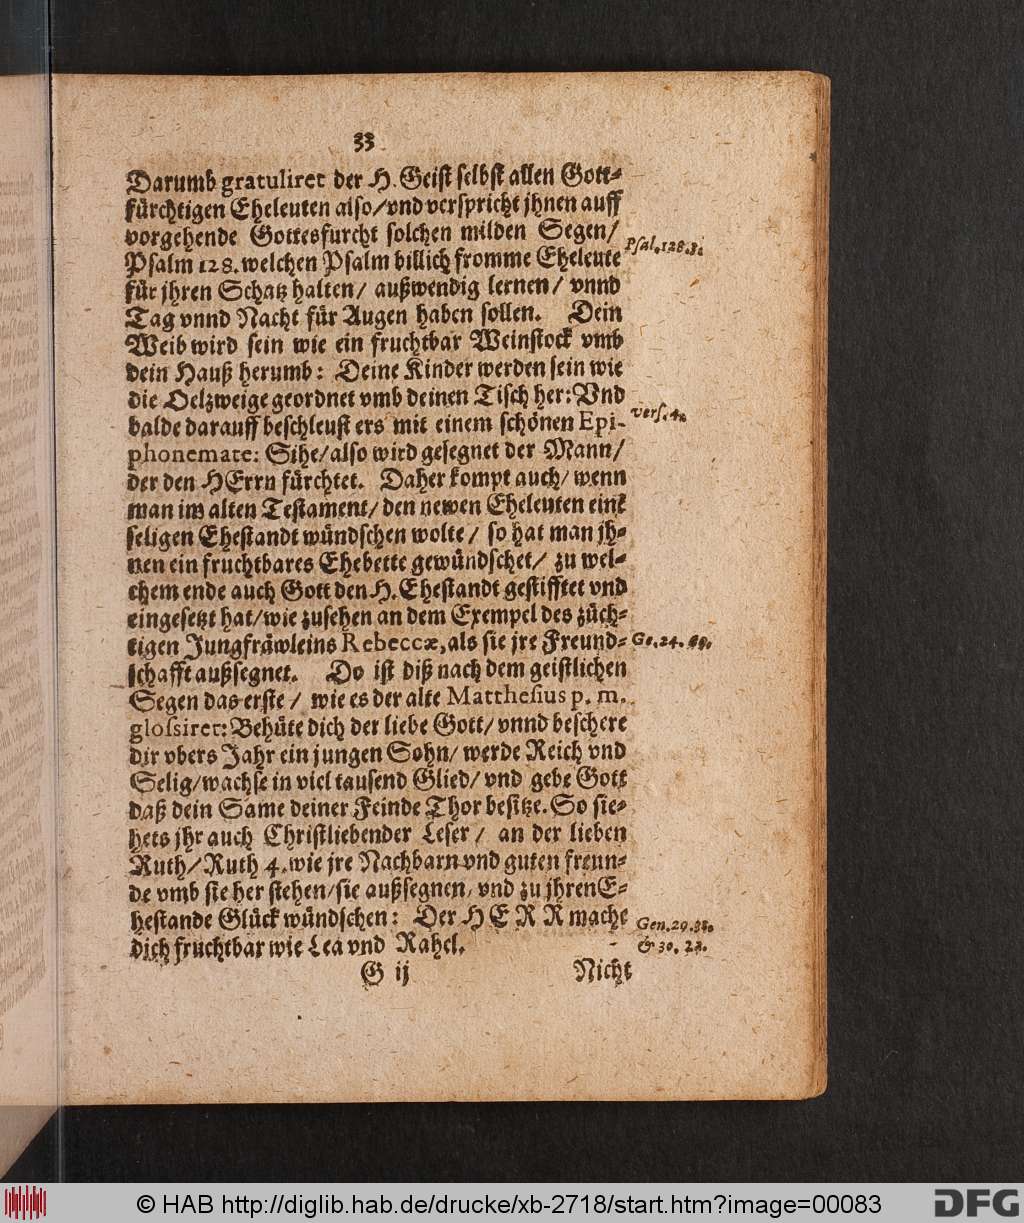 33
Darumb gratuliret der H. Geist selbst allen Gott-
fürchtigen Eheleuten also/vnd verspricht jhnen auff
vorgehende Gottesfurcht solchen milden Segen/
Psal. 128. 3.
Psalm 128. welchen Psalm billich fromme Eheleute
für jhren Schatz halten/ außwendig lernen/ vnnd
Tag vnnd Nacht für Augen haben sollen. Dein
Weib wird sein wie ein fruchtbar Weinstock vmb
dein Hauß herumb: Deine Kinder werden sein wie
die Oelzweige geordnet vmb deinen Tisch her: Vnd
vers. 4.
balde darauff beschleust ers mit einem schönen Epi-
phonemate: Sihe/also wird gesegnet der Mann/
der den HErrn fürchtet. Daher kompt auch/ wenn
man im alten Testament/ den newen Eheleuten eine
seligen Ehestandt wündschen wolte/ so hat man jh-
nen ein fruchtbares Ehebette gewündschet/ zu wel-
chem ende auch Gott den H. Ehestandt gestifftet vnd
eingesetzt hat/wie zusehen an dem Exempel des züch-
tigen Jungfräwleins Rebeccæ, als sie jre Freund-
Ge. 24. 60.
schafft außsegnet. Do ist diß nach dem geistlichen
Segen das erste/ wie es der alte Matthesius p. m.
glossiret: Behüte dich der liebe Gott/ vnnd beschere
dir vbers Jahr ein jungen Sohn/ werde Reich vnd
Selig/wachse in viel tausend Glied/ vnd gebe Gott
daß dein Same deiner Feinde Thor besitze. So sie-
hets jhr auch Christliebender Leser/ an der lieben
Ruth/Ruth 4. wie jre Nachbarn vnd guten freun-
de vmb sie her stehen/sie außsegnen, vnd zu jhren E-
hestande Glück wündschen: Der HERR mache
Gen. 29.
dich fruchtbar wie Lea vnd Rahel.
& 30. 23.
G ij
Nicht
© HAB http://diglib.hab.de/drucke/xb-2718/start.htm?image=00083
DFG